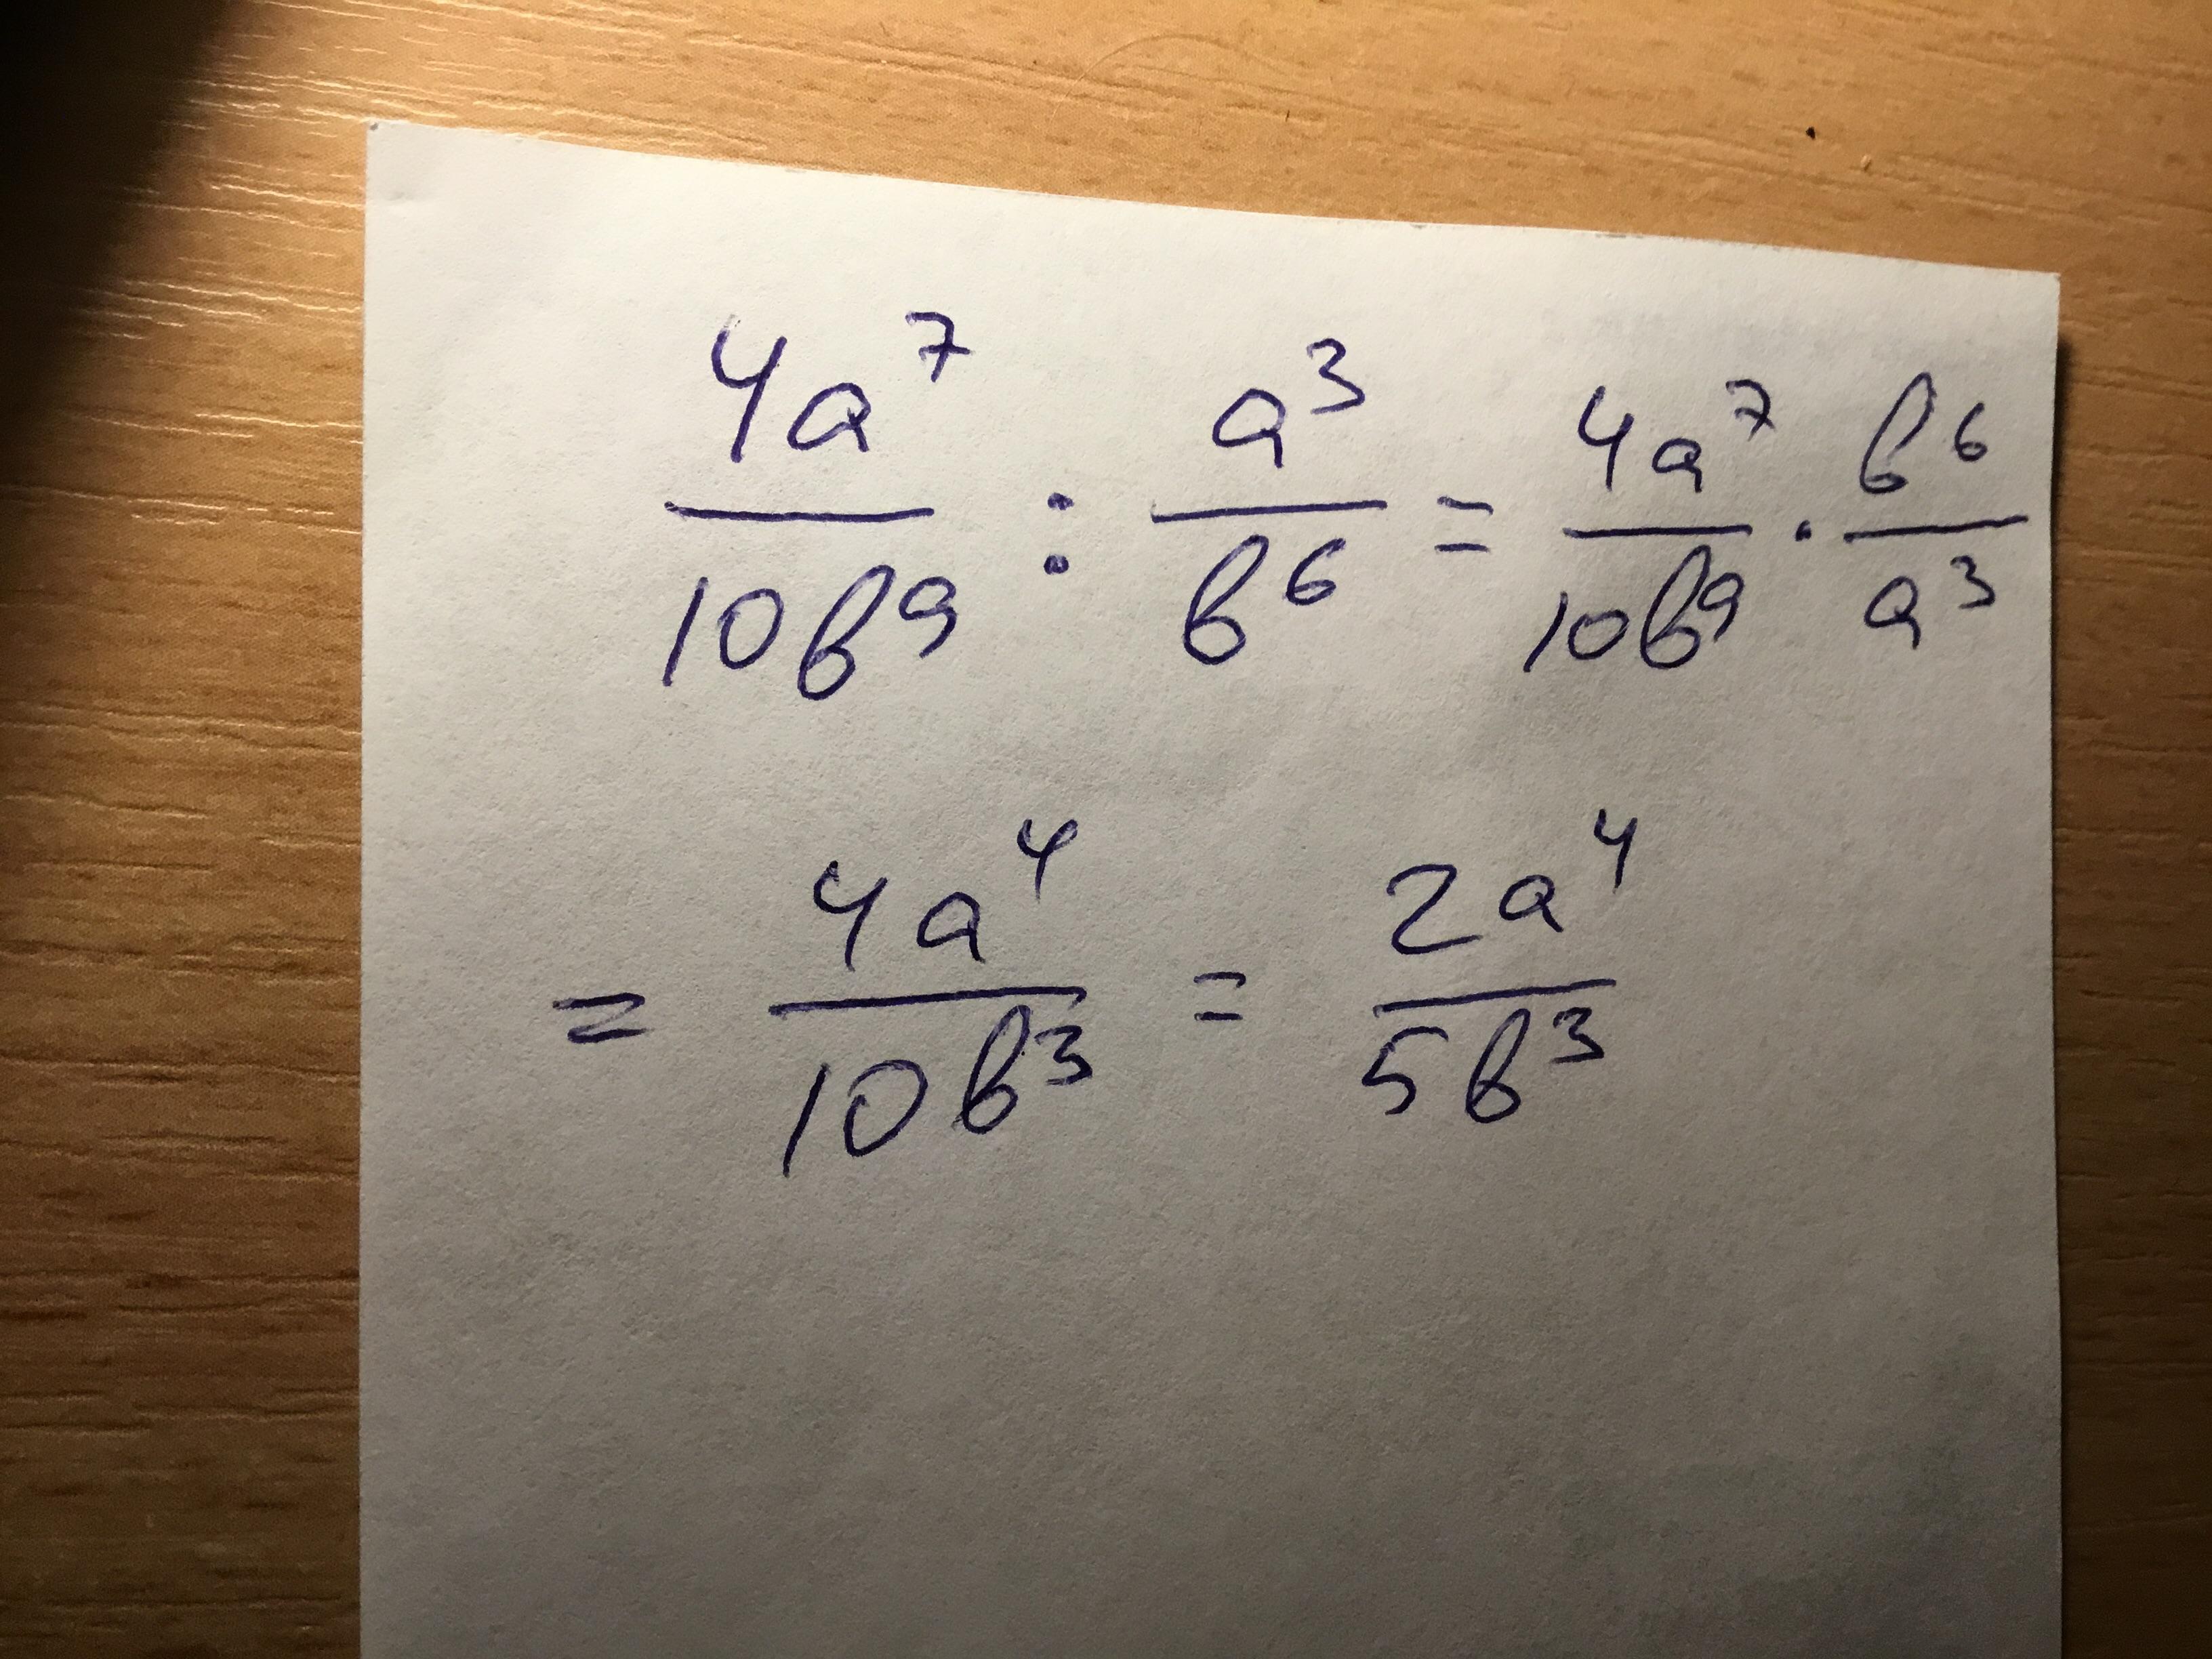 4a⁷/10b⁹ : a³/b⁶ = 4a⁷/10b⁹ · b⁶/a³
= 4a⁴/10b³ = 2a⁴/5b³